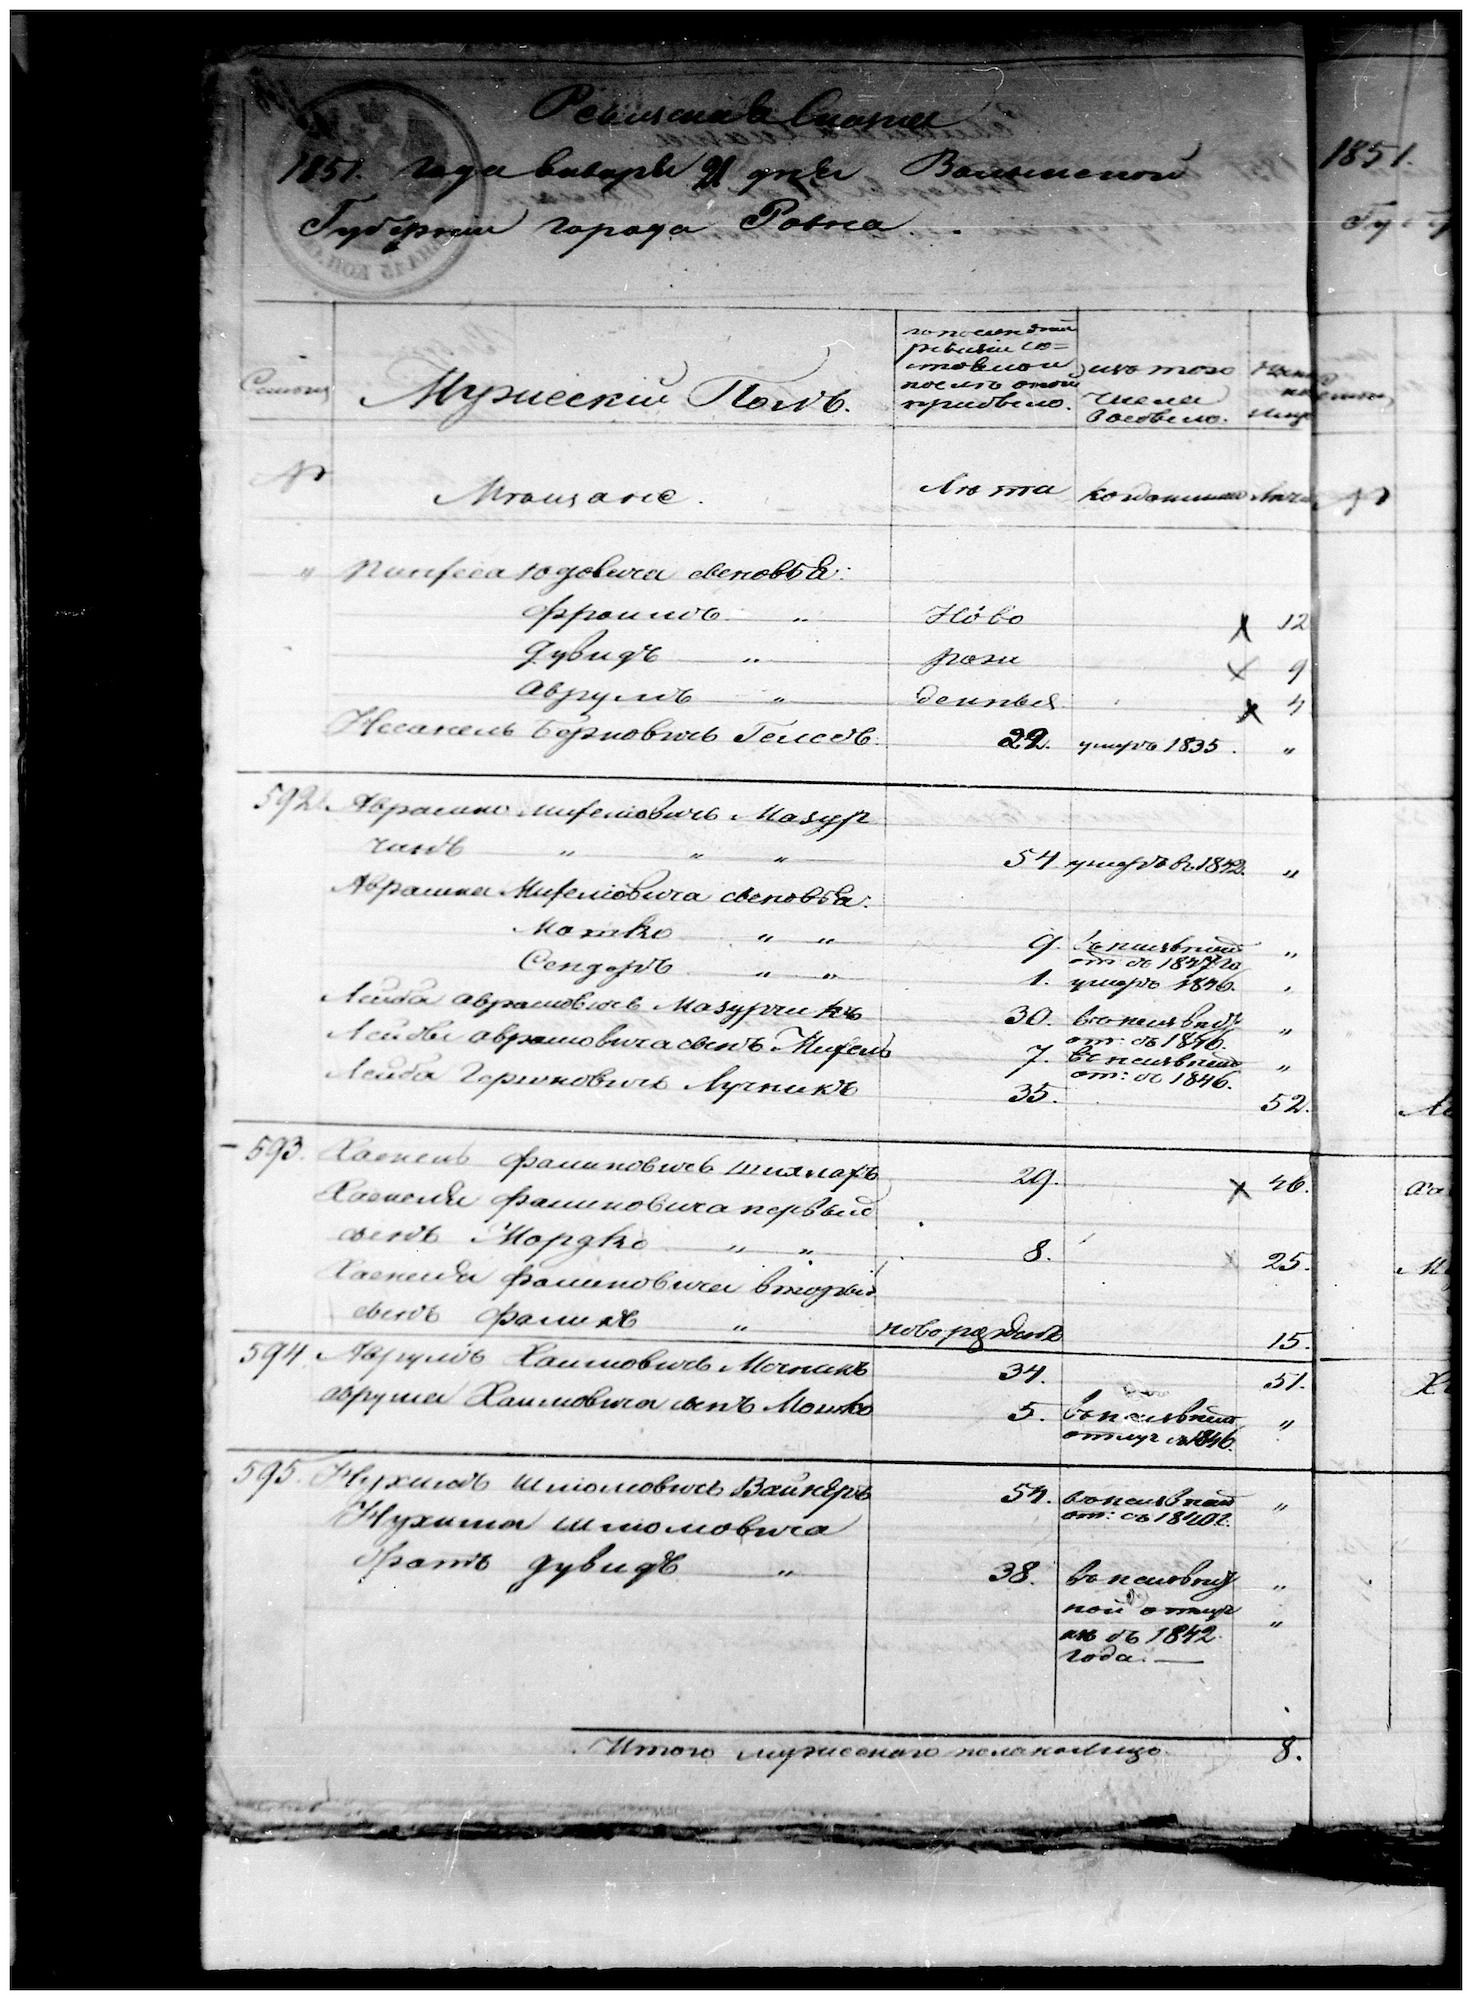 Ревизская Сказка
1851. года Января дня Волынской
Губернии города Ровна.
1851.
Семьи
Мужеский Полъ.
по последней
ревизіи со-
стояло и
после оной
прибыло.
изъ того
числа
выбыло.
Ныне
на
лицо
№
Мещане.
Лета
когда именно
Лета
№
" Пинхеса Юдовича сыновья:
Фроимъ " Ново 12
Дувидъ " рож 9
Аврумъ " денныя 4
Несанель Берковичъ Гелсеъ. 22. умеръ 1835. "
592. Аврамко Михелювичъ Мазур
чикъ " " " 54. умеръ въ 1842. "
Аврашка Михелювича сыновья:
Мошко " " 9. въ неизвестной "
от: съ 1847 го
Сендеръ " " 1. умеръ 1846. "
Лейба Аврамовичъ Мазурчикъ 30. въ неизвест "
от: съ 1846.
Лейбы Аврамовича сынъ Михель 7. въ неизвест "
от: съ 1846.
Лейба Гершковичъ Лучникъ 35. 52.
593. Хаскель Фаликовичъ Шкляръ 29. 46.
Хаскеля Фаликовича первый
сынъ Мордко " " 8. 25.
Хаскеля Фаликовича вторый
сынъ Фаликъ " новорожденъ 15.
594. Аврумъ Хаимовичъ Мочникъ 34. 51.
Аврума Хаимовича сынъ Мошко 5. въ неизвестной "
отлуч съ 1846.
595. Нухимъ Шлиомовичъ Вайнеръ 54. въ неизвест "
от: съ 1840 г.
Нухима Шлиомовича
братъ Дувидъ " 38. въ неизвест "
ной отлуч "
ке съ 1842
года.—
Итого мужескаго пола на лицо 8.